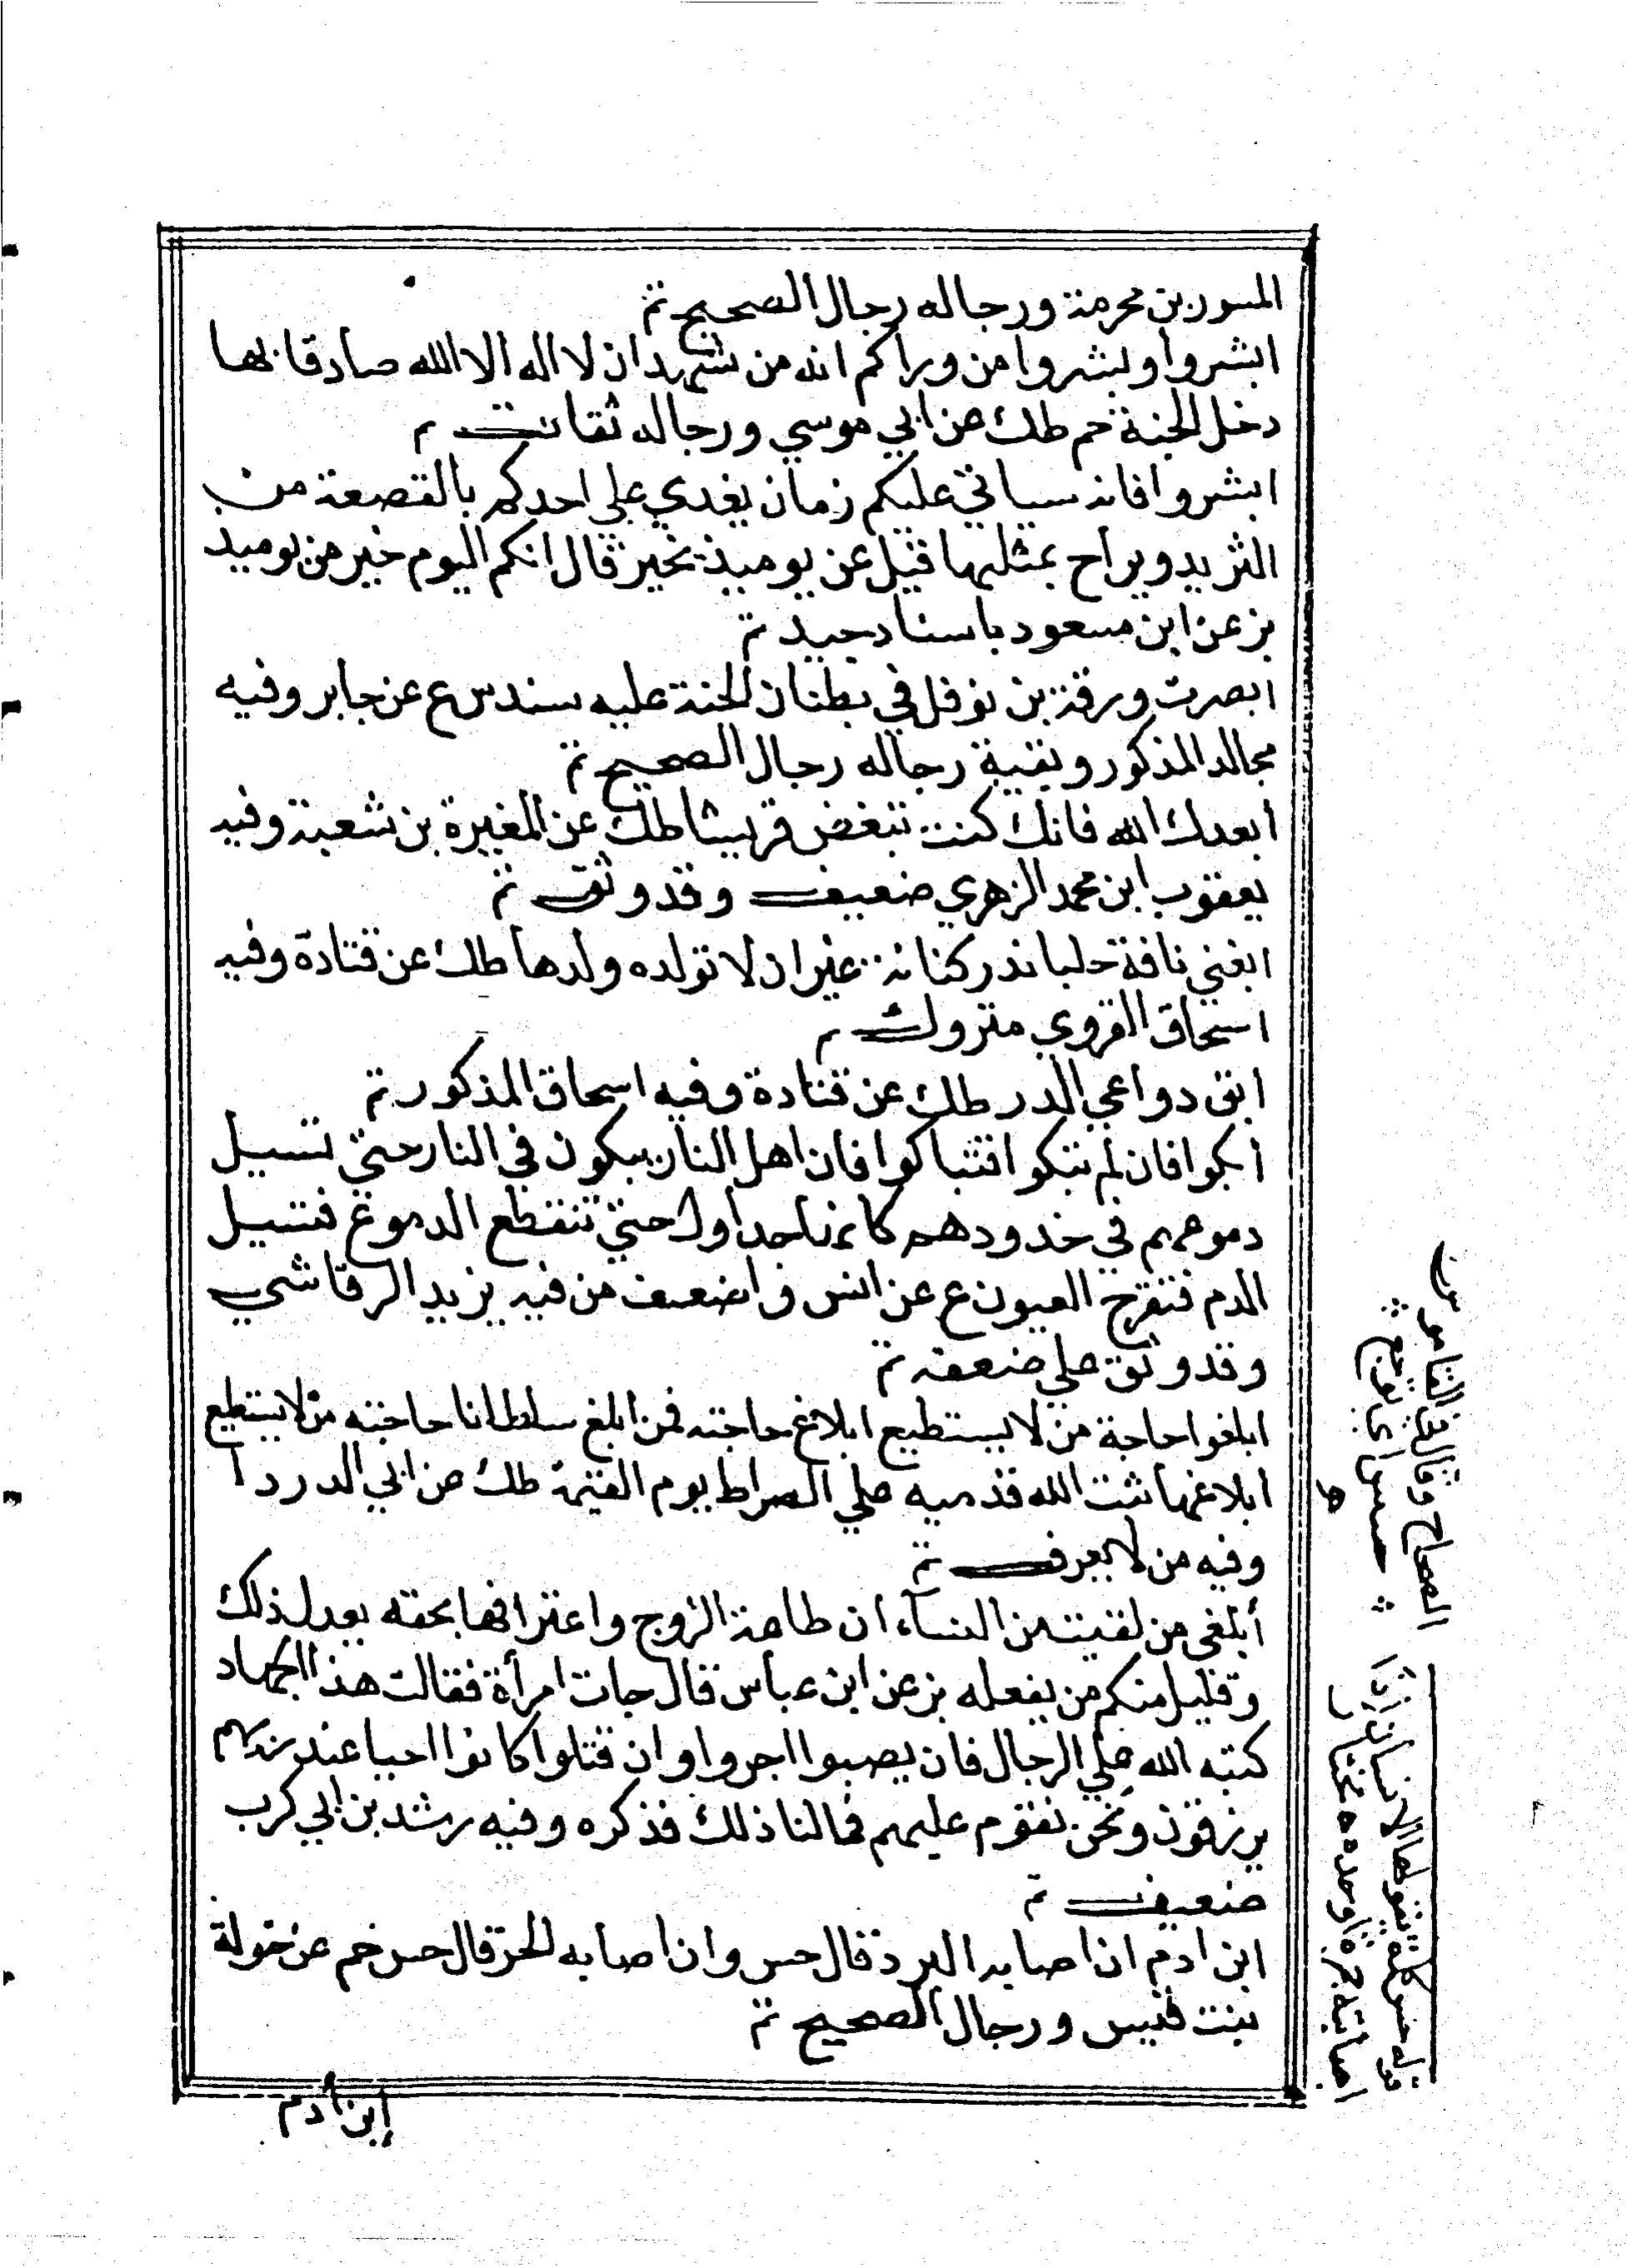 المسور بن مخرمة ورجاله رجال الصحيح تم
ابشروا وبشروا من وراكم انه من شهد ان لا اله الا الله صادقا بها
دخل الجنة حم طك عن ابي موسي ورجاله ثقات م
ابشروا فانه سياتي عليكم زمان يغدي علي احدكم بالقصعة من
الثريد ويراح بمثليها قيل عن يوميذ بخير قال انكم اليوم خير من يوميد
بز عن ابن مسعود باسناد جيد تم
ابصرت ورقة بن نوفل في بطنان الجنة عليه سندس ع عن جابر وفيه
مجالد المذكور وبقية رجاله رجال الصحيح تم
ابعدك الله فانك كنت تبغض قريشا طك عن المغيرة بن شعبة وفيه
يعقوب ابن محمد الزهري ضعيف وقد وثق تم
ابغني ناقة حلبانه ركنانه غير ان لا توله ولدها طك عن قتادة وفيه
اسحاق الفروي متروك م
ابق دواعي الدر طك عن قتادة وفيه اسحاق المذكور تم
ابكوا فان لم تبكوا فتباكوا فان اهل النار يبكون في النار حتي تسيل
دموعهم في خدودهم كانها جداول حتي تنقطع الدموع فتسيل
الدم فتقرح العيون ع عن انس واضعف من فيه يزيد الرقاشي
وقد وثق علي ضعفه تم
ابلغوا حاجة من لا يستطيع ابلاغ حاجته فمن ابلغ سلطانا حاجته من لا يستطيع
ابلاغها ثبت الله قدميه علي الصراط يوم القيمة طك عن ابي الدردا
وفيه من لا يعرف تم
أبلغي من لقيت من النساء ان طاعة الزوج واعترافها بحقه يعدل ذلك
وقليل منكم من يفعله بز عن ابن عباس قال جات امرأة فقالت هذا الجهاد
كتبه الله علي الرجال فان يصيبوا اجروا وان قتلوا كانوا احيا عند ربهم
يرزقون ونحن نقوم عليهم فمالنا ذلك فذكره وفيه رشد بن ابي كرب
ضعيف تم
ابن ادم ان اصابه البرد قال حس وان اصابه الحر قال حس حم عن خولة
بنت قيس ورجال الصحيح تم
إبن أدم
قوله حس كلمة يقولها الانسان اذا
اصابته جمرة اوحده مختار
الصحاح وقال في القاموس
حسس اي توجع
هـ